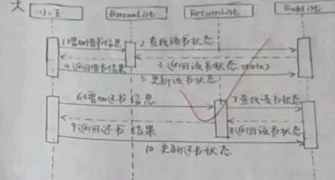 小王
BorrowList
ReturnList
1增加借书信息
2 查找该书状态
3返回该书状态(state)
4返回借书结果
5 更新该书状态
6:增加还书信息
7查找该书状态
8返回该书状态
9返回还书结果
10 更新还书状态